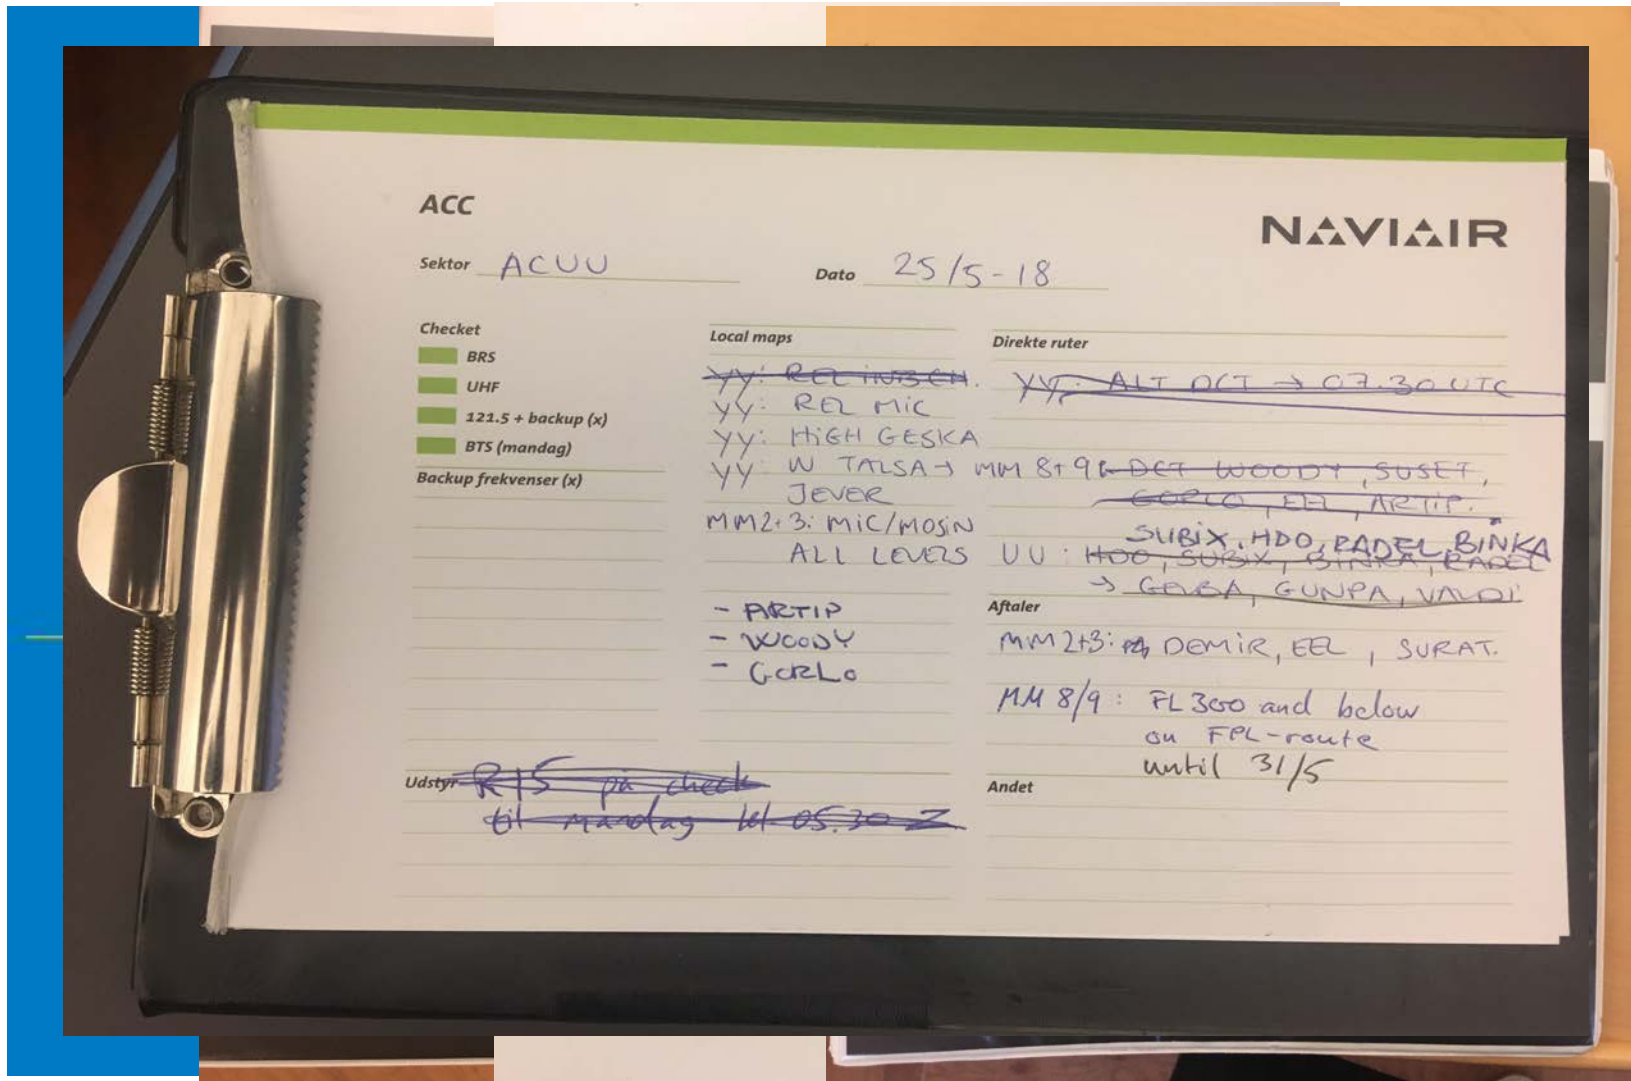 ACC
NAVIAIR
Sektor ACUU
Dato 25/5-18
Checket
BRS
UHF
121.5 + backup (x)
BTS (mandag)
Backup frekvenser (x)
Local maps
YY: REL
YY: REL MIC
YY: HIGH GESKA
YY: W TALSA →
JEVER
MM2+3: MIC/MOSIN
ALL LEVELS
- ARTIP
- WOODY
- GORLO
Direkte ruter
YY: ALT DCT → 07.30 UTC
MM 8+9: DCT WOODY, SUSET,
GORLO, EEL, ARTIP.
SUBIX, HDO, RADEL, BINKA
UU: HDO, SUBIX, BINKA, RADEL
→ GABA, GUNPA, VALDI
Aftaler
MM2+3: DEMIR, EEL, SURAT.
MM 8/9: FL300 and below
on FPL-route
until 31/5
Udstyr R15 på check
til mandag kl 05.30 Z
Andet